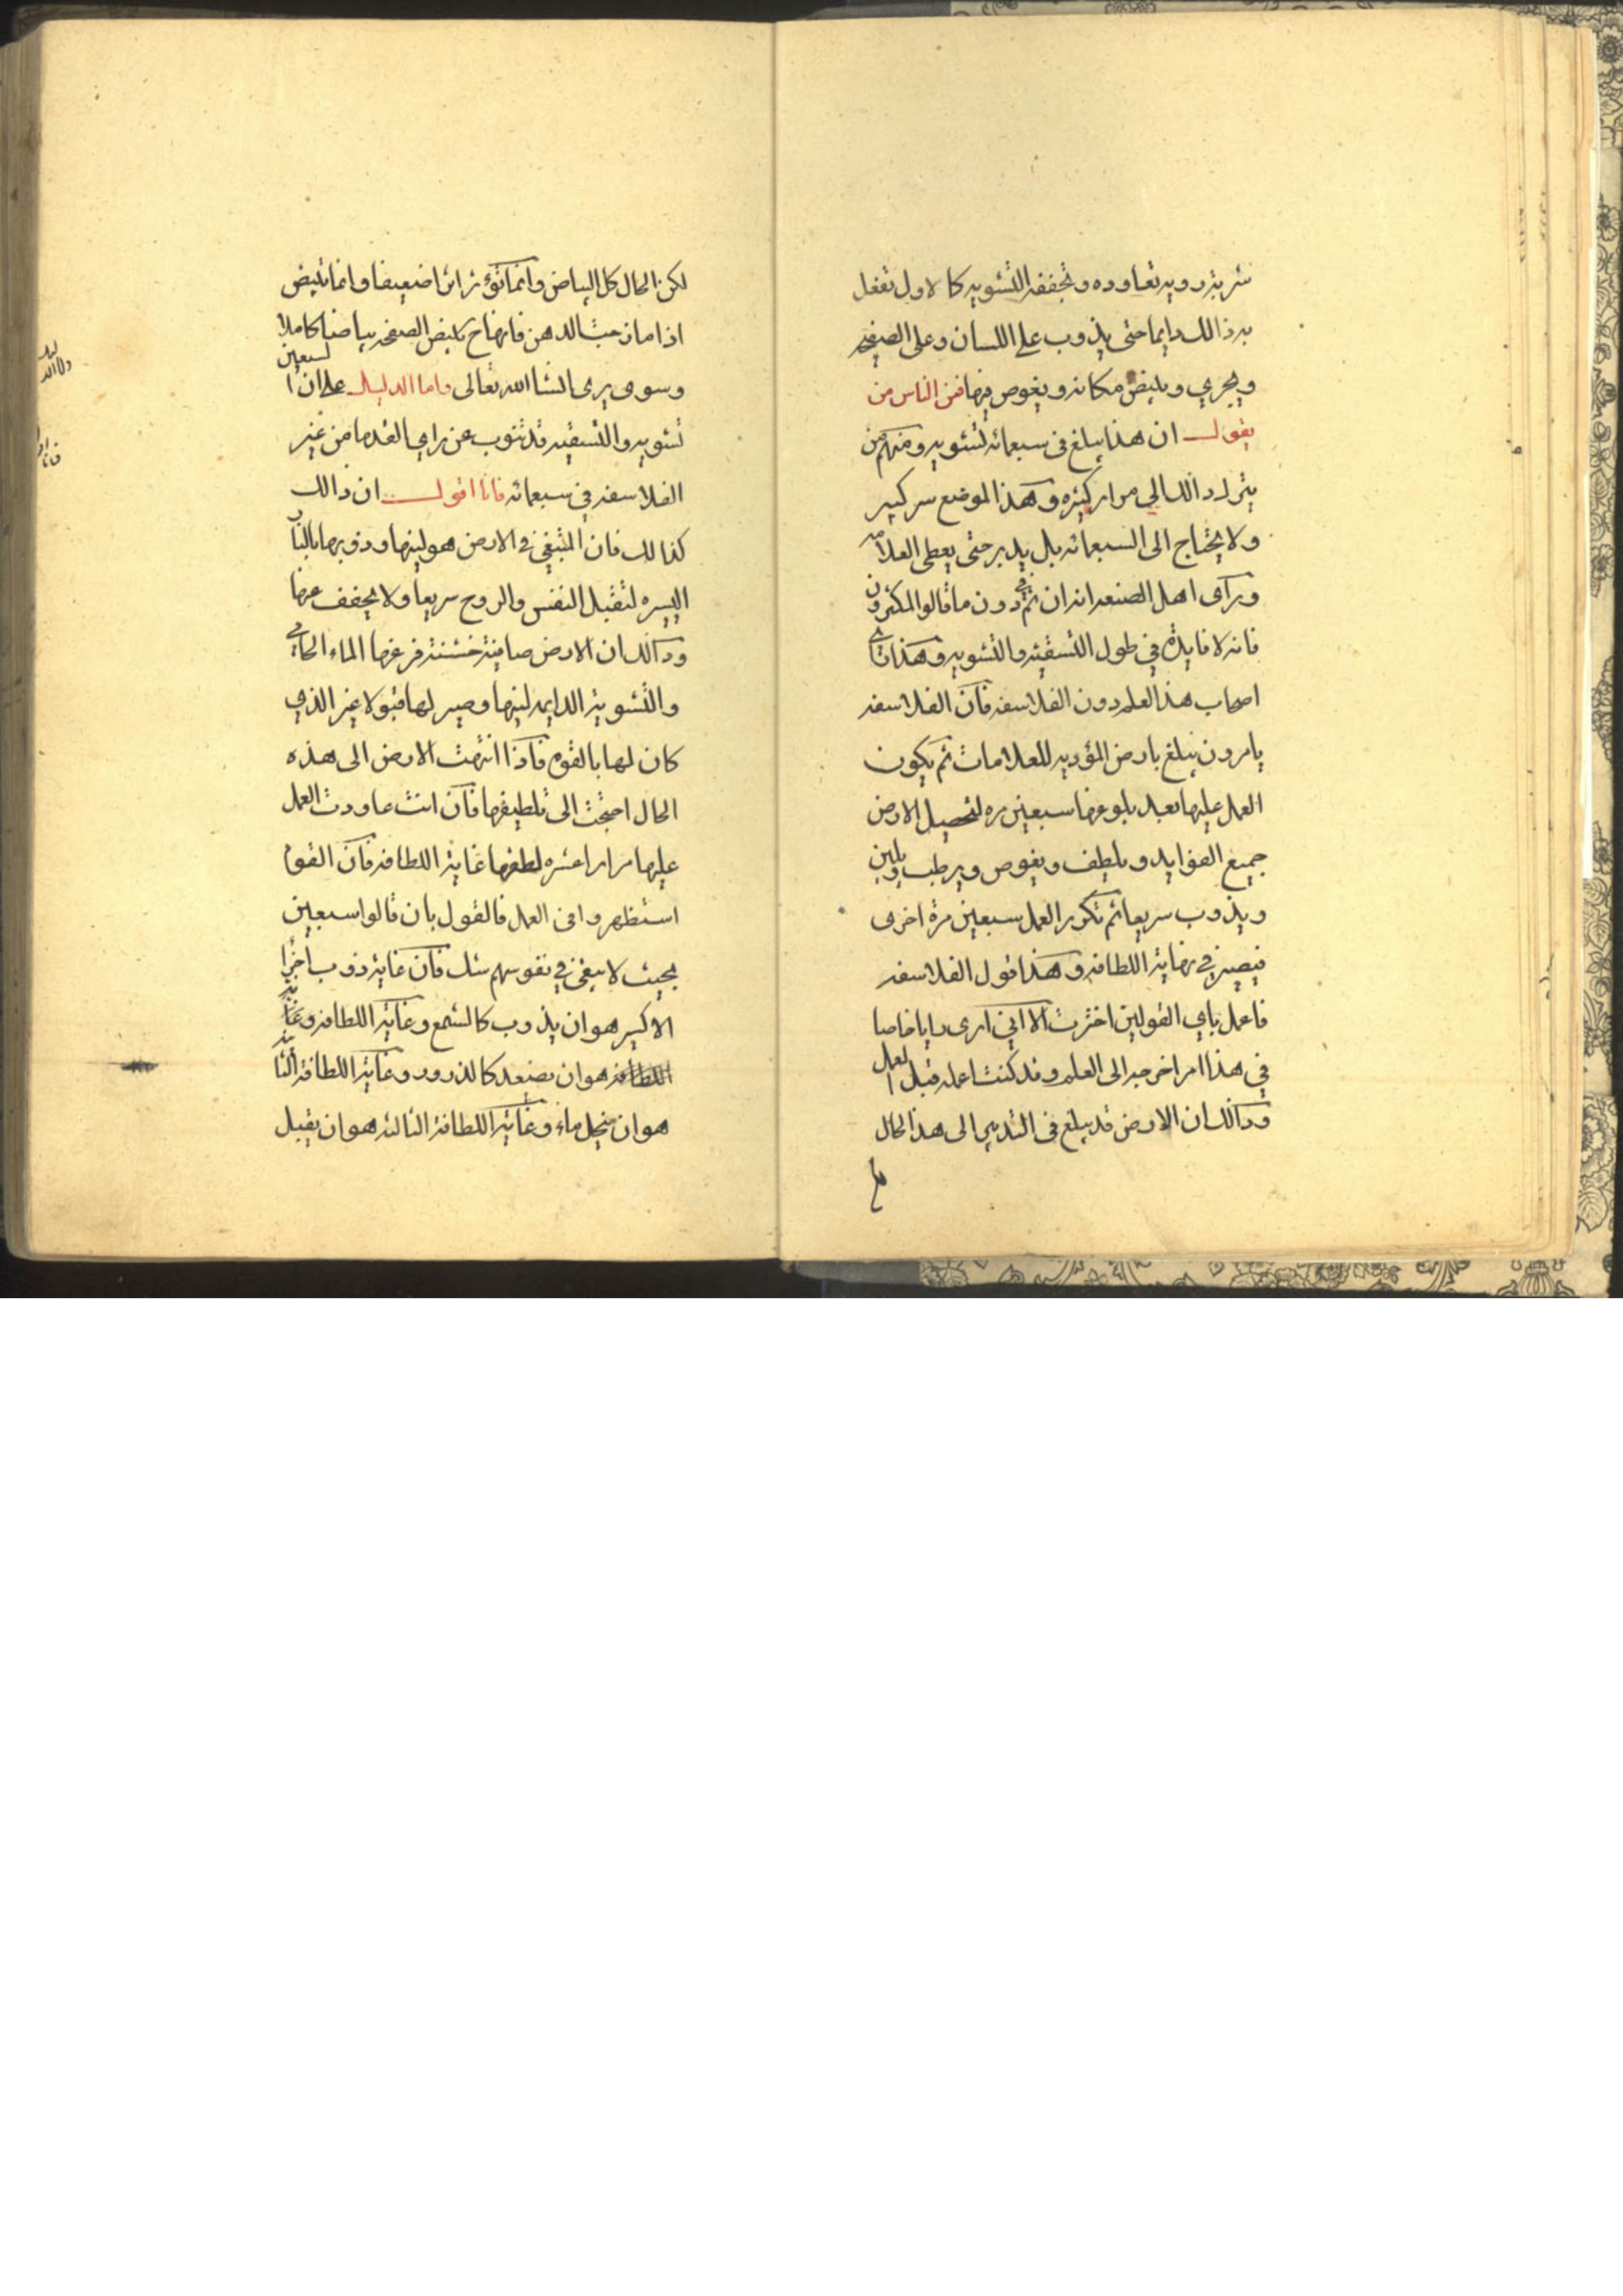 شربة روية تعاوده وتجففه التشويه كالاول تفعل
به ذالك دايما حتى يذوب على اللسان وعلى الصفيحه
ويجري ويبيض مكانه ويغوص فيها فمن الناس من
يقول ان هذا يبلغ في سبعمائه تشويه ومنهم من
يزاد ذالك الي مرار كثيره وهذا الموضع سر كبير
ولا يحتاج الى السبعمائه بل يدبر حتى يعطي العلامه
وراى اهل الصنعه انه ان دون ما قالوا المكثرون
فانه لا فايدة في طول التسقيه والتشويه وهذا راي
اصحاب هذا العلم دون الفلاسفه فان الفلاسفه
يامرون يبلغ بارض المؤديه للعلامات ثم يكون
العمل عليها بعد بلوغها سبعين مره لتحصيل الارض
جميع الفوايد ويلطف ويغوص ويرطب ويلين
ويذوب سريعا ثم تكرير العمل سبعين مرة اخرى
فيصير في نهاية اللطافه وهذا قول الفلاسفه
فاعمل باي القولين اخترت الا اني ارى رايا خاصا
في هذا امر اخر الى العلم وقد كنت اعمله قبل العمل
وذالك ان الارض قد يبلغ في التدبير الى هذا الحال
لكن الحال كل البياض وانما تؤثر اثرا ضعيفا وانما تبيض
اذا مازجت الدهن فانها ح تبيض الصفحه بياضا كاملا
وسوى يرى انشا الله تعالى واما الدليل على ان السبعين
تشويه والتسقيه قد تنوب عن راي القدما من غير
الفلاسفه في سبعمائه فانا اقول ان ذالك
كذالك فان المبتغى في الارض هو لينها وذوبها بالنار
اليسره لتقبل النفس والروح سريعا ولا يجفف عنها
وذالك ان الارض خشنة الماء الحاد
والتشوية الدايمه لينها وصير لها قبولا غير الذي
كان لها بالقوه فاذا انتهت الارض الى هذه
الحال احتجت الى تلطيفها فان انت عاودت العمل
عليها مرارا عشره لطفها غاية اللطافه فان القوم
استظهروا في العمل فالقول بان قالوا سبعين
بحيث لا يبقى في نفوسهم شك فان غاية ذوب اجزا
الاكسير هو ان يذوب كالشمع وغاية اللطافه وغاية
اللطافه هو ان يصعد كالذرور وغاية اللطافة الثانيه
هو ان ينحل ماء وغاية اللطافة الثالثه هو ان يقبل